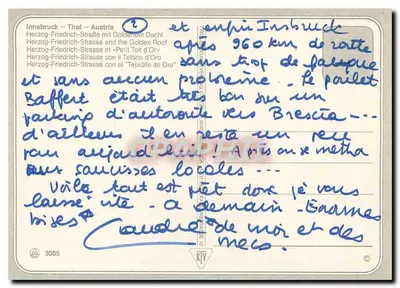 Innsbruck – Tirol – Austria
Herzog-Friedrich-Straße mit Goldenem Dachl
Herzog-Friedrich-Strasse and the Golden Roof
Herzog-Friedrich-Strasse et «Petit Toit d'Or»
Herzog-Friedrich-Strasse con il Tettino d'Oro
Herzog-Friedrich-Strasse con el "Tejadito de Oro"
2
et enfin Insbruck
après 960 km de route
sans trop de fatigue
et sans aucun problème - le poulet
Baffert était très bon sur un
parking d'autoroute vers Brescia ---
d'ailleurs il en reste un peu
pour aujourd'hui ! Après on se mettra
aux saucisses locales ---
Voilà tout est prêt donc je vous
laisse vite - a demain - Enormes
bises
de moi et des
mecs.
3005
KTV
©